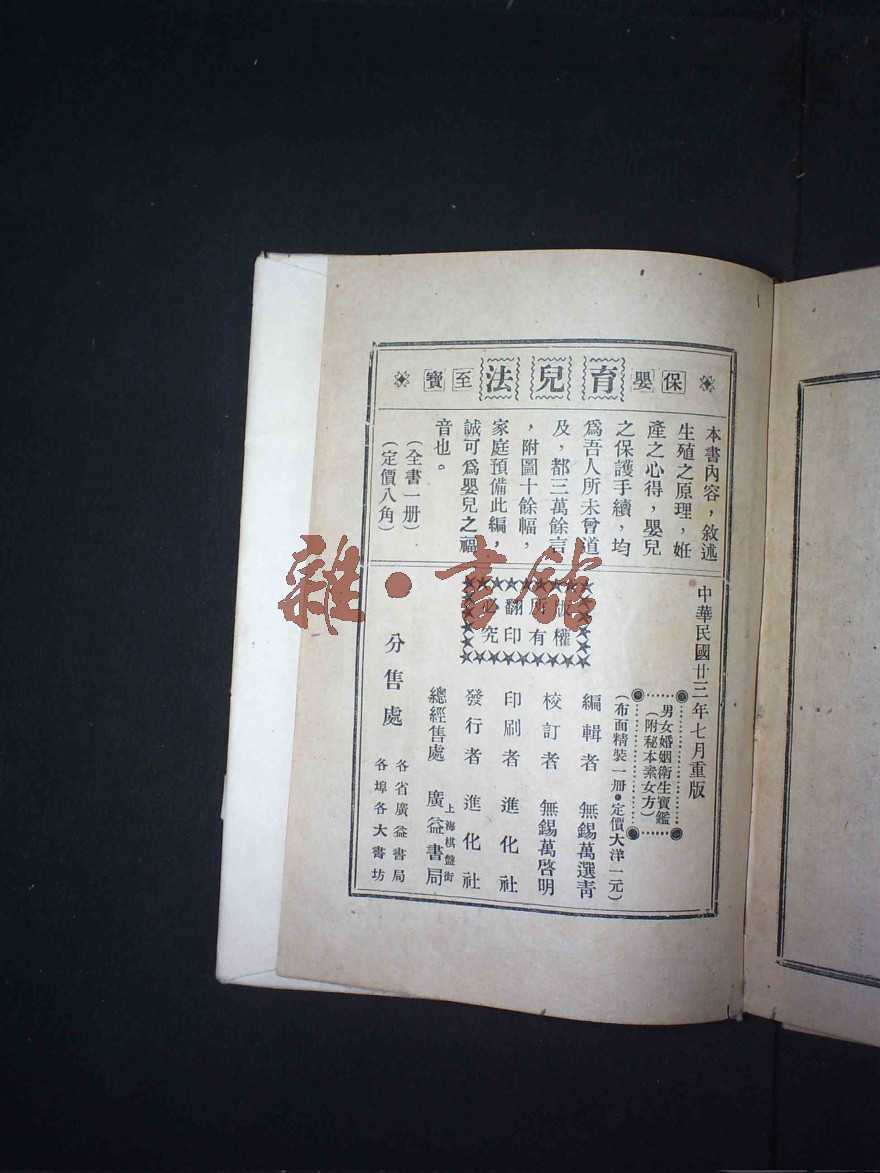 保嬰 育兒法 至寶
本書內容，敘述
生殖之原理，姙
產之心得，嬰兒
之保護手續，均
爲吾人所未曾道
及，都三萬餘言
，附圖十餘幅，
家庭預備此編，
誠可爲嬰兒之福
音也。
（全書一册）
（定價八角）
中華民國廿三年七月重版
男女婚姻衛生寶鑑
（附秘本素女方）
（布面精裝一册●定價大洋一元）
版權
所有
翻印
必究
編輯者 無錫萬選青
校訂者 無錫萬啓明
印刷者 進化社
發行者 進化社
上海棋盤街
總經售處 廣益書局
分售處
各省廣益書局
各埠各大書坊
雜·書館